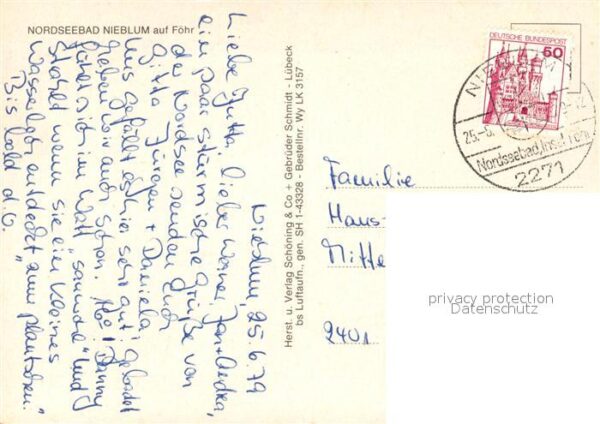 NORDSEEBAD NIEBLUM auf Föhr
Nieblum, 25.6.79
Liebe Jutta, lieber Werner, Jan + Andrea,
ein paar stürmische Grüße von
der Nordsee senden Euch
Gitta, Jürgen + Daniela.
Uns gefällt es hier sehr gut; gebadet
haben wir auch schon. Danny
fühlt sich im Watt "sauwohl" und
strahlt wenn sie ein kleines
Wasserloch entdeckt "zum planschen."
Bis bald d. O.
Herst. u. Verlag Schöning & Co + Gebrüder Schmidt - Lübeck
bs Luftaufn., gen. SH 1-43328 - Bestellnr. Wy LK 3157
DEUTSCHE BUNDESPOST
60
25.-6.
Nordseebad, Insel Föhr
2271
Familie
Haus-
Mitte
2401
privacy protection
Datenschutz